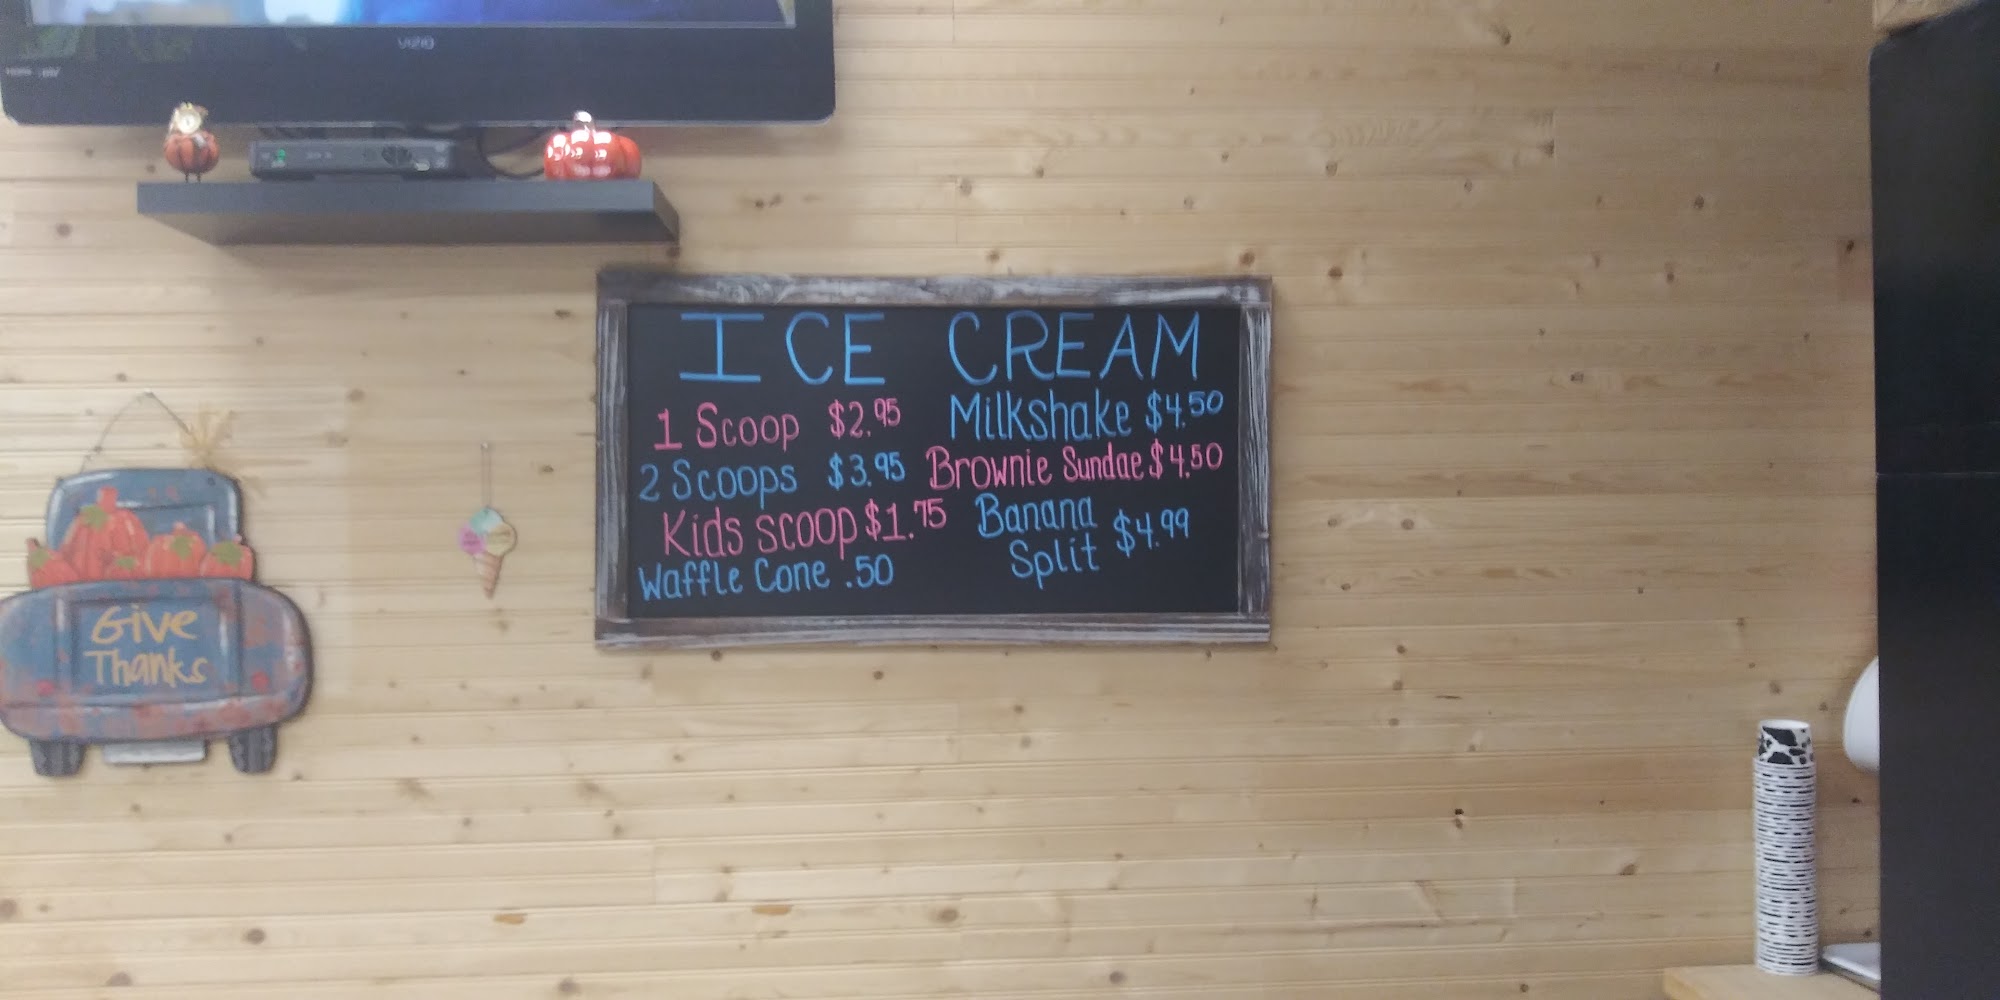 VIZIO
ICE CREAM
1 Scoop $2.95
2 Scoops $3.95
Kids scoop $1.75
Waffle Cone .50
Milkshake $4.50
Brownie Sundae $4.50
Banana
Split $4.99
Give
Thanks